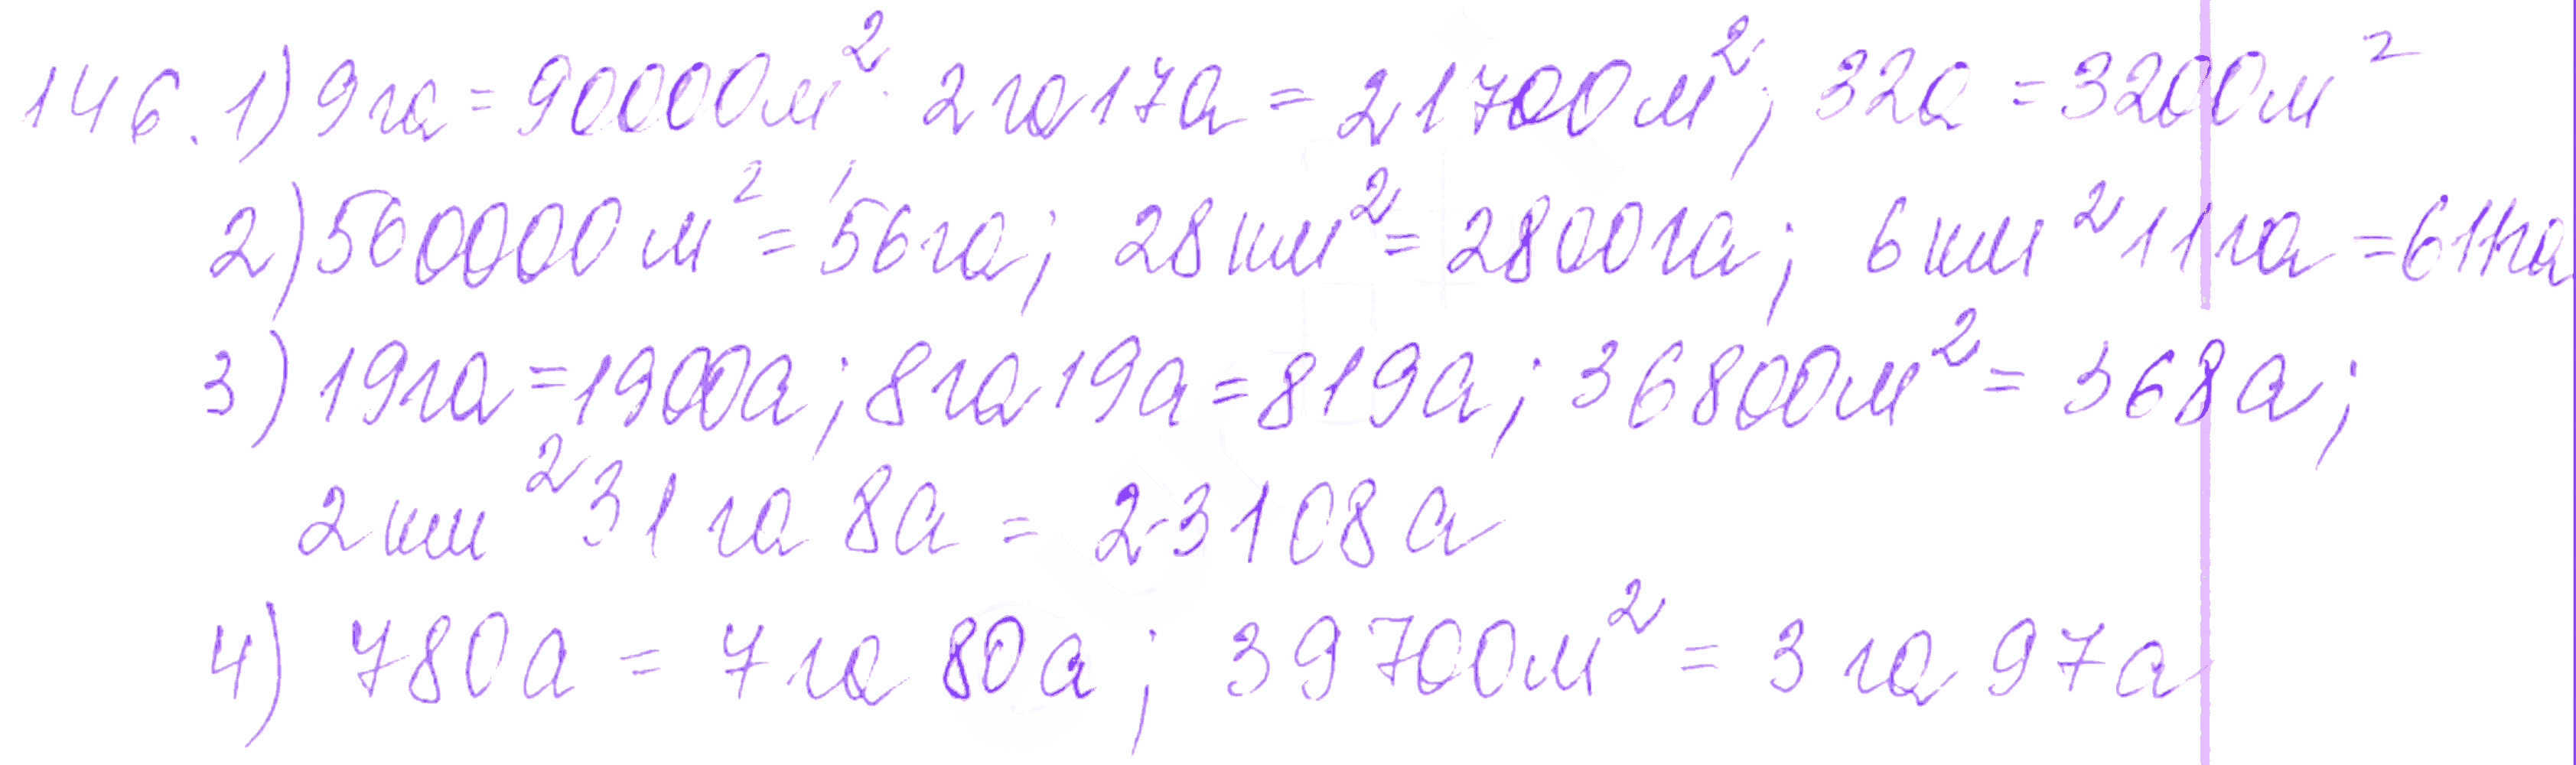 146. 1) 9 га = 90000 м². 2 га 17 а = 21700 м²; 32 а = 3200 м²
2) 560000 м² = 56 га; 28 км² = 2800 га; 6 км² 11 га = 611 га
3) 19 га = 1900 а; 8 га 19 а = 819 а; 36800 м² = 368 а;
2 км² 31 га 8 а = 23108 а
4) 780 а = 7 га 80 а; 39700 м² = 3 га 97 а